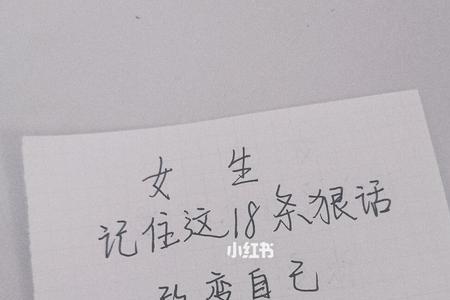 女生
记住这18条狠话
小红书
改变自己